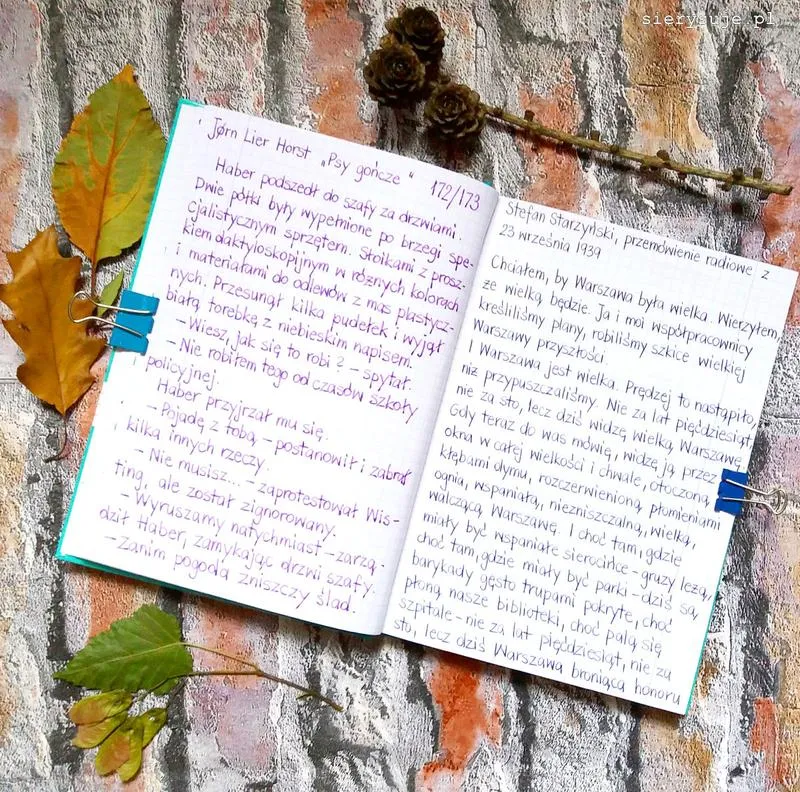 sierysuje.pl
Jørn Lier Horst „Psy gończe"
172/173
Haber podszedł do szafy za drzwiami.
Dwie półki były wypełnione po brzegi spe-
cjalistycznym sprzętem. Słoikami z prosz-
kiem daktyloskopijnym w różnych kolorach
i materiałami do odlewów z mas plastycz-
nych. Przesunął kilka pudełek i wyjął
białą torebkę z niebieskim napisem.
- Wiesz, jak się to robi? - spytał.
- Nie robiłem tego od czasów szkoły
policyjnej.
Haber przyjrzał mu się.
- Pojadę z tobą - postanowił i zabrał
kilka innych rzeczy.
- Nie musisz... - zaprotestował Wis-
ting, ale został zignorowany.
- Wyruszamy natychmiast - zarzą-
dził Haber, zamykając drzwi szafy.
- Zanim pogoda zniszczy ślad.
Stefan Starzyński, przemówienie radiowe z
23 września 1939
Chciałem, by Warszawa była wielka. Wierzyłem,
że wielką będzie. Ja i moi współpracownicy
kreśliliśmy plany, robiliśmy szkice wielkiej
Warszawy przyszłości.
I Warszawa jest wielka. Prędzej to nastąpiło,
niż przypuszczaliśmy. Nie za lat pięćdziesiąt,
nie za sto, lecz dziś widzę wielką Warszawę.
Gdy teraz do was mówię, widzę ją przez
okna w całej wielkości i chwale, otoczoną
kłębami dymu, rozczerwienioną płomieniami
ognia, wspaniałą, niezniszczalną, wielką,
walczącą Warszawę. I choć tam, gdzie
miały być wspaniałe sierocińce - gruzy leżą,
choć tam, gdzie miały być parki - dziś są
barykady gęsto trupami pokryte, choć
płoną nasze biblioteki, choć palą się
szpitale - nie za lat pięćdziesiąt, nie za
sto, lecz dziś Warszawa broniąca honoru